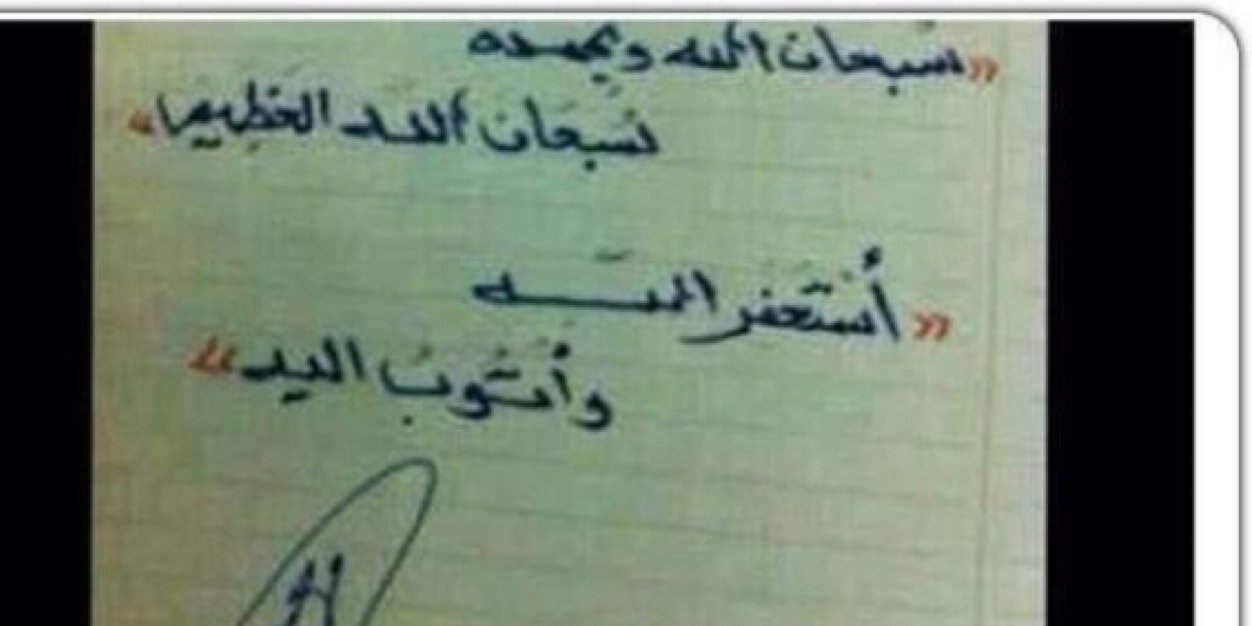 «سبحان الله وبحمده
سبحان الله العظيم»
«أستغفر الله
وأتوب إليه»